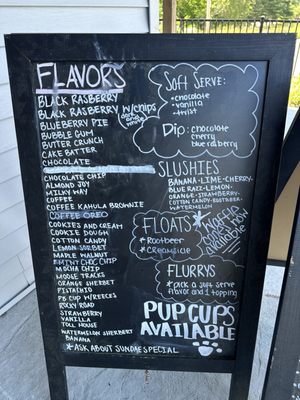 FLAVORS
BLACK RASBERRY
BLACK RASBERRY W/CHIPS
BLUEBERRY PIE
BUBBLE GUM
BUTTER CRUNCH
CAKE BATTER
CHOCOLATE
CHOCOLATE CHIP
ALMOND JOY
MILKY WAY
COFFEE
COFFEE KAHULA BROWNIE
COFFEE OREO
COOKIES AND CREAM
COOKIE DOUGH
COTTON CANDY
LEMON SORBET
MAPLE WALNUT
MINT CHOC CHIP
MOCHA CHIP
MOOSE TRACKS
ORANGE SHERBET
PISTACHIO
PB CUP W/REECES
ROCKY ROAD
STRAWBERRY
VANILLA
TOLL HOUSE
WATERMELON SHERBERT
BANANA
*ASK ABOUT SUNDAE SPECIAL
SOFT SERVE:
•chocolate
•vanilla
•twist
DIP:
•chocolate
cherry
blue razberry
SLUSHIES
BANANA-LIME-CHERRY-
BLUE RAZZ-LEMON-
ORANGE-STRAWBERRY-
COTTON CANDY-ROOTBEER-
WATERMELON
FLOATS
*Rootbeer
*CREAMSICLE
*WAFFLE
CONES
AVAILABLE
NOW
FLURRYS
*pick a soft serve
flavor and 1 topping
PUP CUPS
AVAILABLE